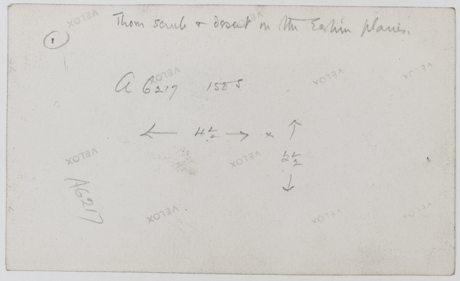 Thorn scrub & desert on the Eastern plains.
1
A 6217 1585
← 4½ → × ↑
2½
↓
A6217
VELOX
VELOX
VELOX
VELOX
VELOX
VELOX
VELOX
VELOX
VELOX